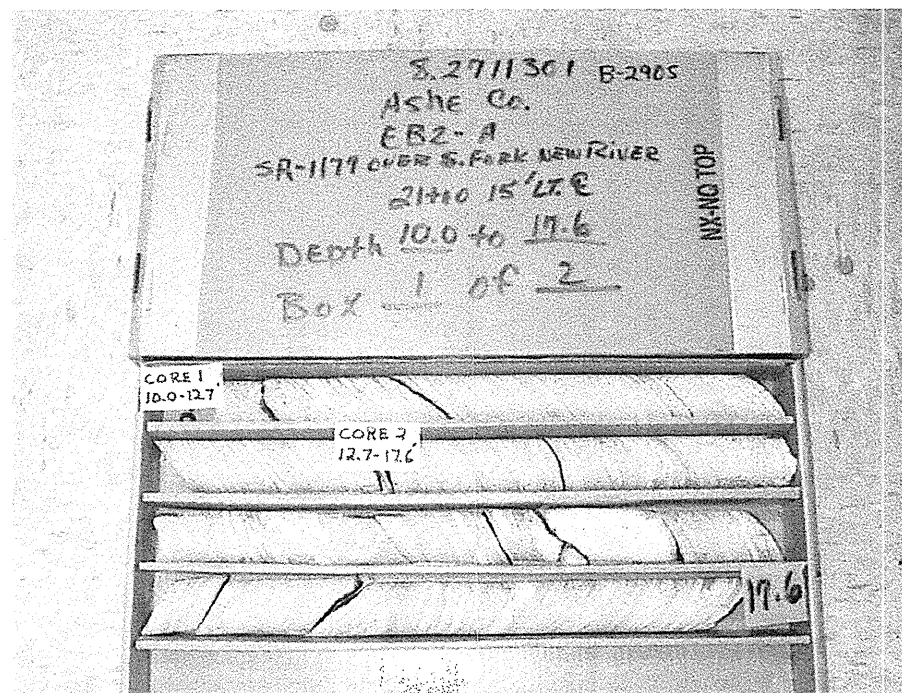 8.2711301 B-2905
Ashe Co.
EB2-A
SR-1179 OVER S. FORK NEW RIVER
21+00 15' LT. ℄
Depth 10.0 to 17.6
Box 1 of 2
NX-NQ TOP
CORE 1
10.0-12.7'
CORE 2
12.7-17.6'
17.6'